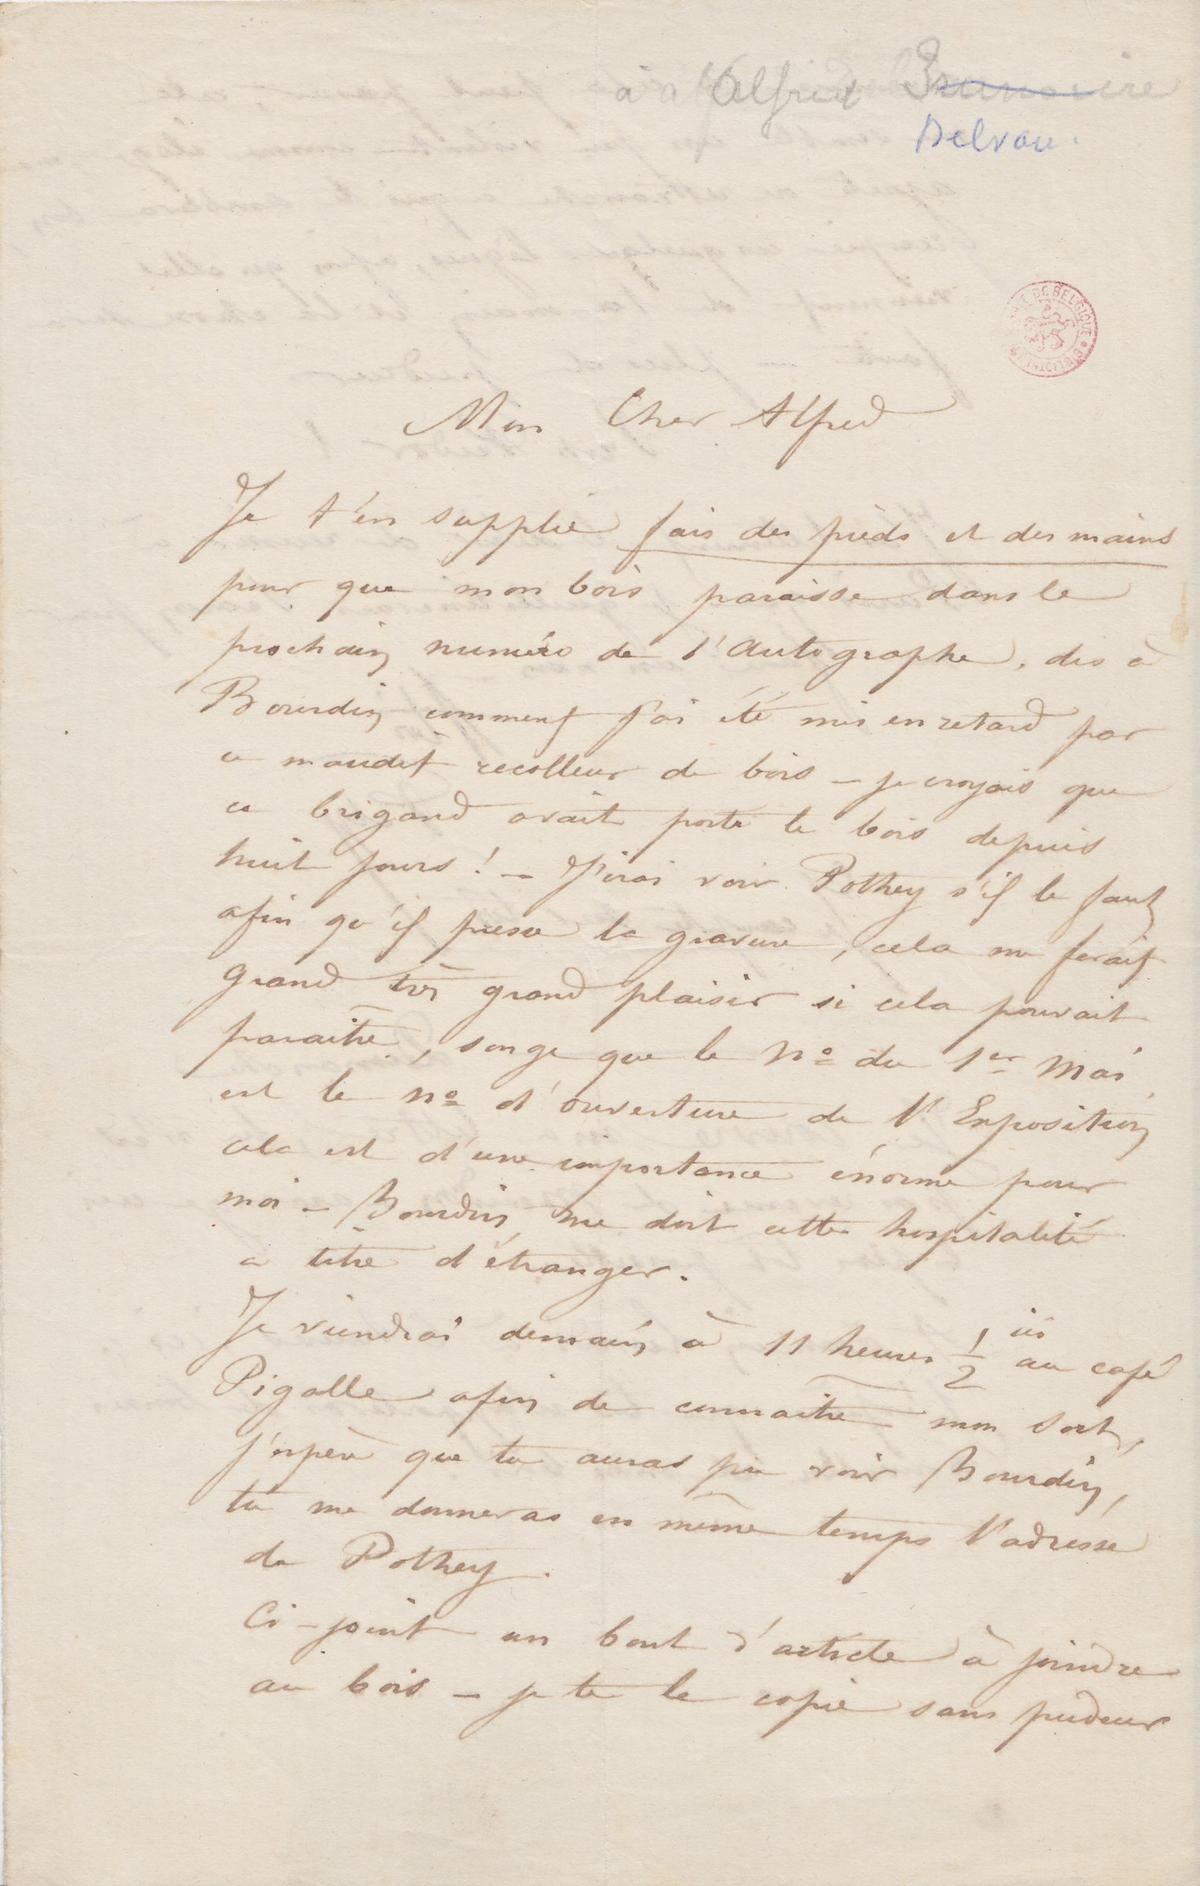 à Alfred
Delvau.
Mon Cher Alfred
Je t'en supplie fais des pieds et des mains
pour que mon bois paraisse dans le
prochain numéro de l'Autographe, dis à
Bourdin comment j'ai été mis en retard par
ce maudit recolleur de bois – je croyais que
ce brigand avait porté le bois depuis
huit jours! – J'irai voir Pothey s'il le faut
afin qu'il presse la gravure, cela me ferait
grand très grand plaisir si cela pouvait
paraître, songe que le nº du 1er Mai
est le nº d'ouverture de l'Exposition
cela est d'une importance énorme pour
moi – Bourdin me doit cette hospitalité
a titre d'étranger.
Je viendrai demain à 11 heures 1/2 ici au café
Pigalle afin de connaître mon sort,
j'espère que tu auras pu voir Bourdin,
tu me donneras en même temps l'adresse
de Pothey.
Ci-joint un bout d'article à joindre
au bois – je te le copie sans pudeur